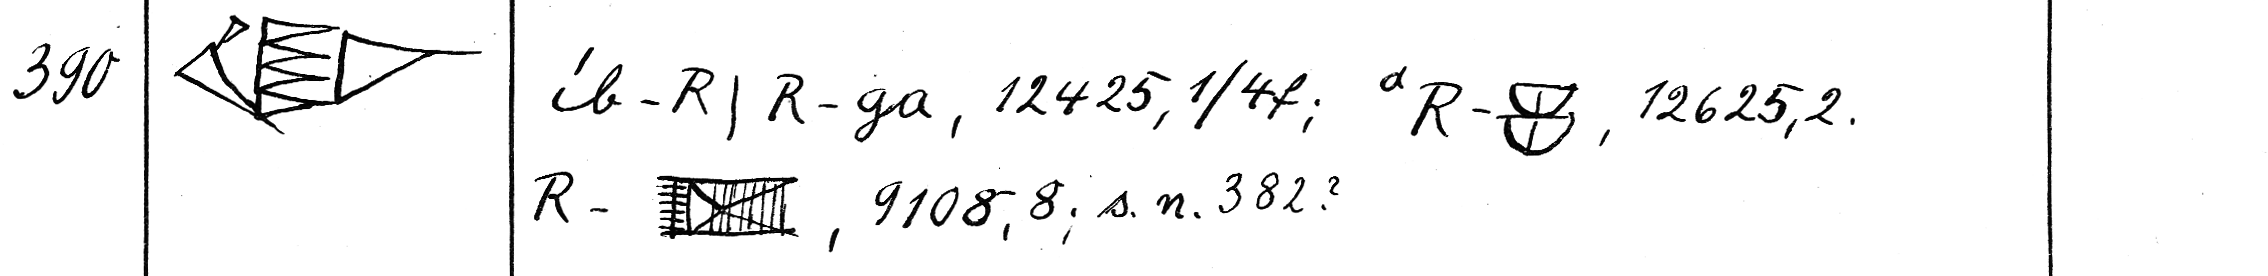 390 íb-R | R-ga, 12425,1/4f; ᵈR-, 12625,2.
R-, 9108,8; s. n. 382?